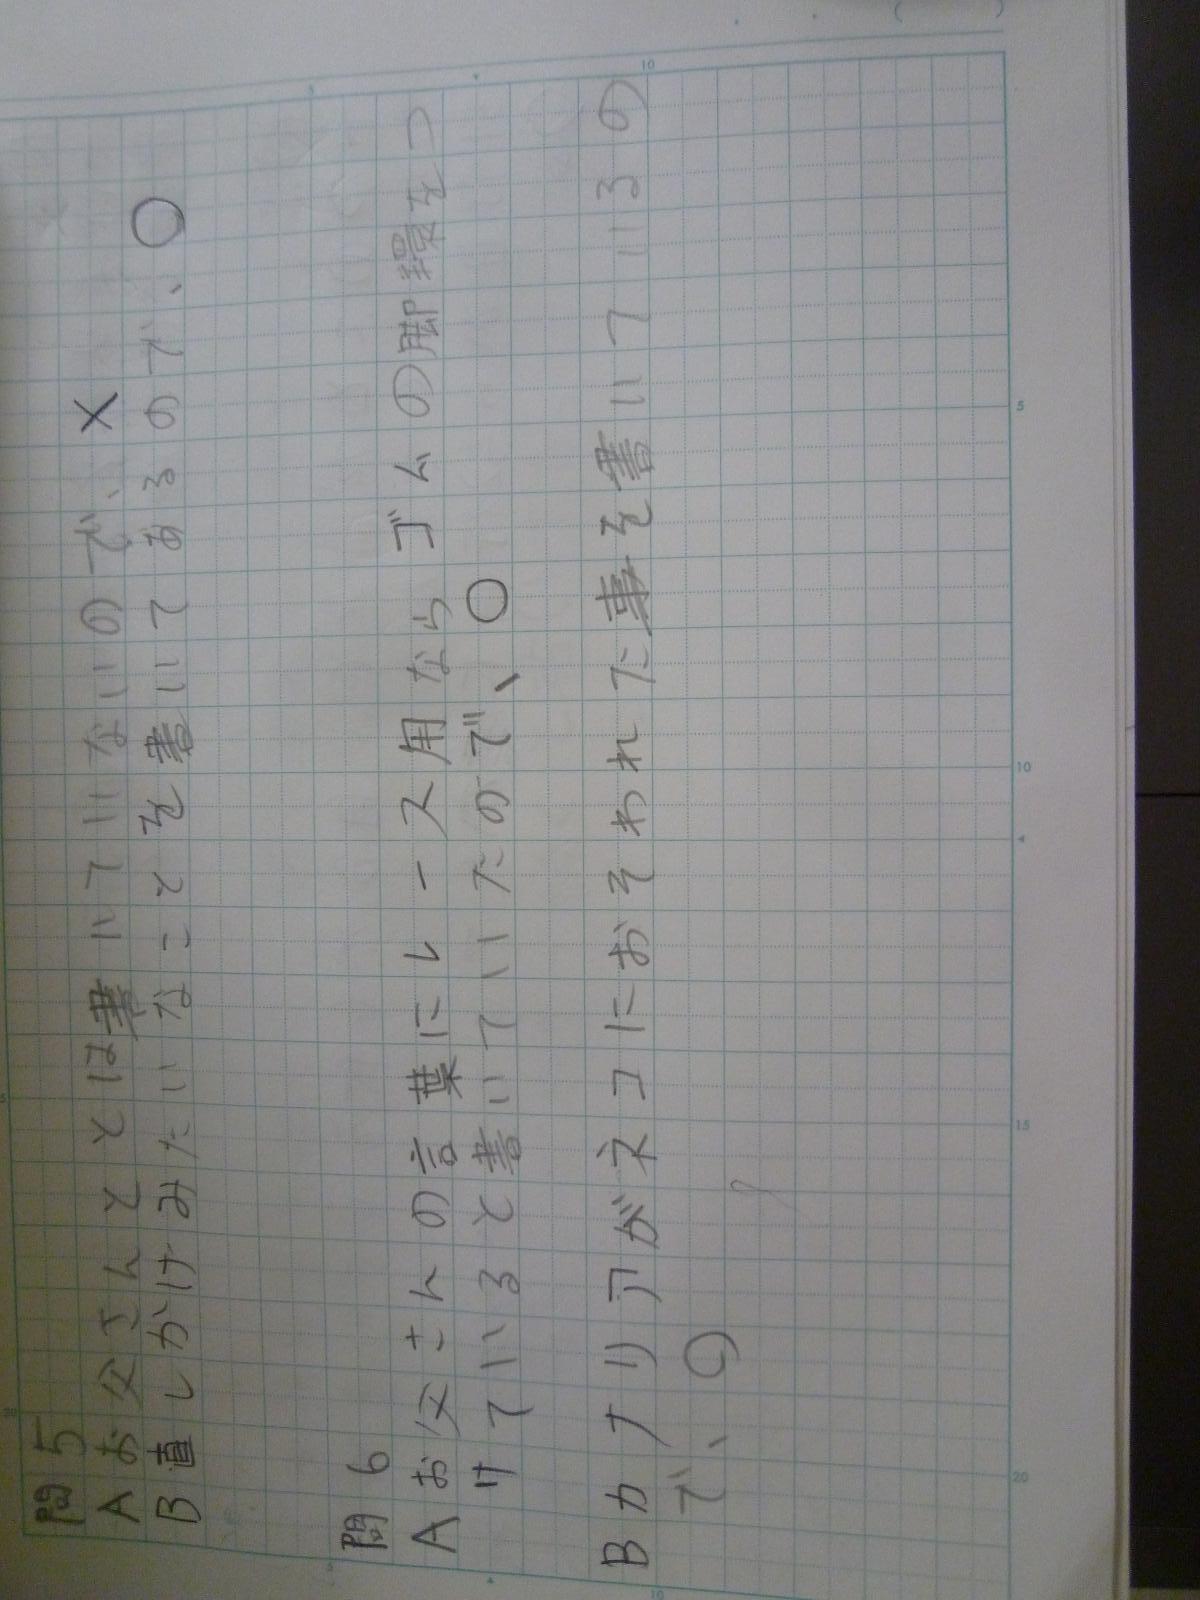 問5
Aお父さんととは書いていないので、×
B直しがけみたいなことを書いてあるので、○
問6
Aお父さんの言葉にレース用ならゴムの脚環をつ
けていると書いていたので、○
Bカナリアがネコにおそわれた事を書いているの
で、○
5
10
15
20